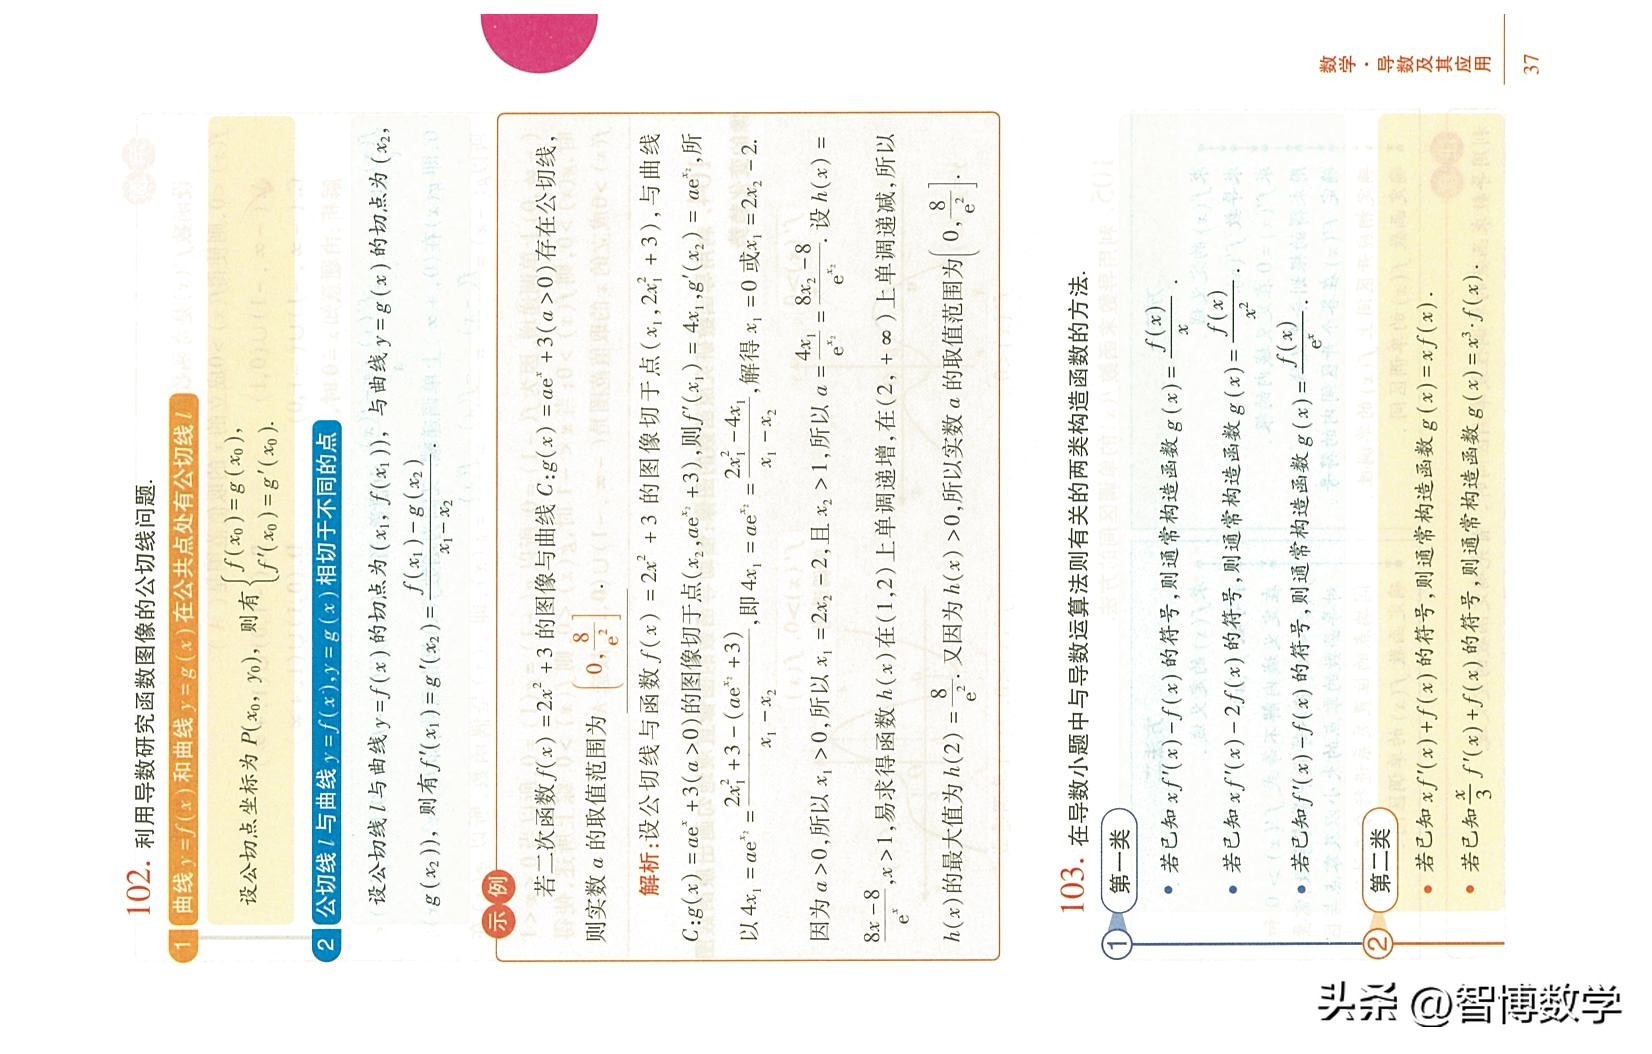 102. 利用导数研究函数图像的公切线问题.
1 曲线 y=f(x)和曲线 y=g(x)在公共点处有公切线 l
设公切点坐标为 P(x₀, y₀), 则有{f(x₀)=g(x₀),
f′(x₀)=g′(x₀).
2 公切线 l 与曲线 y=f(x),y=g(x)相切于不同的点
设公切线 l 与曲线 y=f(x)的切点为(x₁, f(x₁)), 与曲线 y=g(x)的切点为(x₂,
g(x₂)), 则有 f′(x₁)=g′(x₂)=(f(x₁)-g(x₂))/(x₁-x₂).
示例
若二次函数 f(x)=2x²+3 的图像与曲线 C:g(x)=aeˣ+3(a>0)存在公切线,
则实数 a 的取值范围为 (0, 8/e²] .
解析:设公切线与函数 f(x)=2x²+3 的图像切于点(x₁,2x₁²+3),与曲线
C:g(x)=aeˣ+3(a>0)的图像切于点(x₂,ae^{x₂}+3),则f′(x₁)=4x₁,g′(x₂)=ae^{x₂},所
以 4x₁=ae^{x₂}=(2x₁²+3-(ae^{x₂}+3))/(x₁-x₂),即 4x₁=ae^{x₂}=(2x₁²-4x₁)/(x₁-x₂),解得 x₁=0 或x₁=2x₂-2.
因为 a>0,所以 x₁>0,所以 x₁=2x₂-2,且 x₂>1,所以 a=4x₁/e^{x₂}=(8x₂-8)/e^{x₂}. 设 h(x)=
(8x-8)/eˣ,x>1,易求得函数 h(x)在(1,2)上单调递增,在(2,+∞)上单调递减,所以
h(x)的最大值为 h(2)=8/e². 又因为 h(x)>0,所以实数 a 的取值范围为(0, 8/e²].
103. 在导数小题中与导数运算法则有关的两类构造函数的方法.
1 第一类
• 若已知 xf′(x)-f(x)的符号,则通常构造函数 g(x)=f(x)/x.
• 若已知 xf′(x)-2f(x)的符号,则通常构造函数 g(x)=f(x)/x².
• 若已知f′(x)-f(x)的符号,则通常构造函数 g(x)=f(x)/eˣ.
2 第二类
• 若已知 xf′(x)+f(x)的符号,则通常构造函数 g(x)=xf(x).
• 若已知 x/3 f′(x)+f(x)的符号,则通常构造函数 g(x)=x³·f(x).
数学·导数及其应用
37
头条 @智博数学